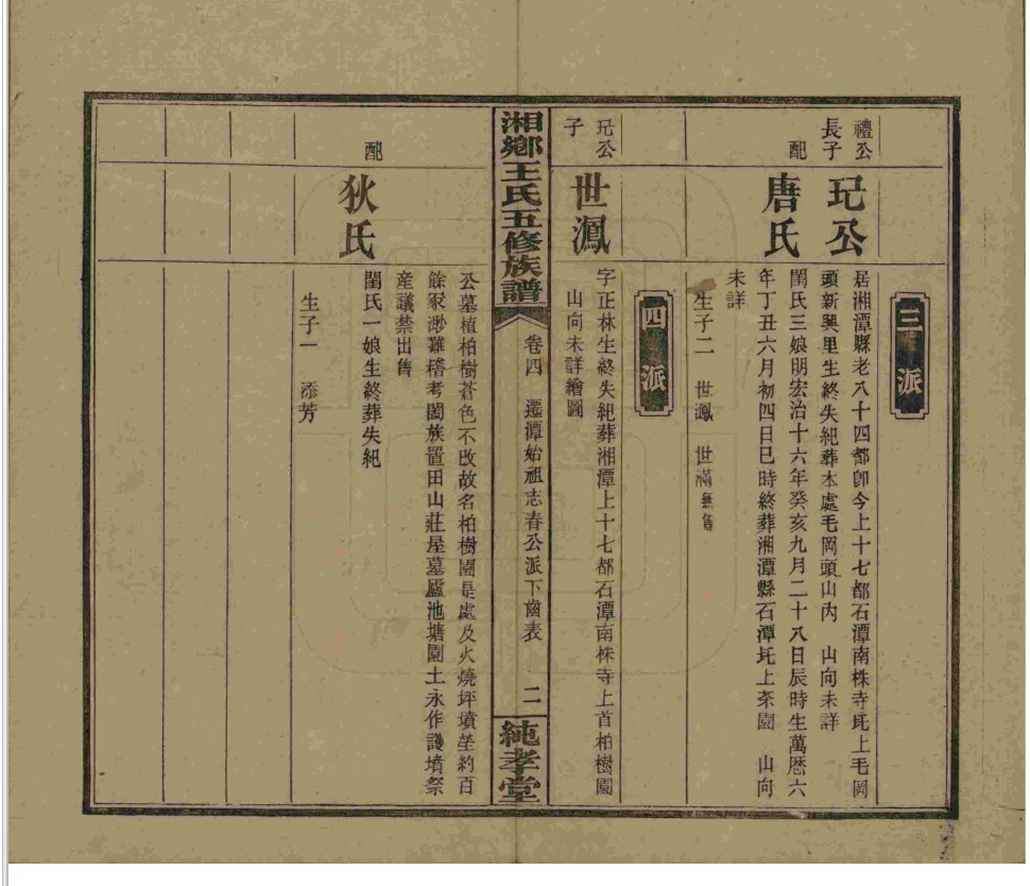 三派
禮公
長子
玘公
居湘潭縣老八十四都卽今上十七都石潭南株寺坉上毛岡
頭新興里生終失紀葬本處毛岡頭山內 山向未詳
配
唐氏
閨氏三娘明宏治十六年癸亥九月二十八日辰時生萬曆六
年丁丑六月初四日巳時終葬湘潭縣石潭坉上茶園 山向
未詳
生子二 世鳳 世滿無傳
四派
玘公
子
世鳳
字正林生終失紀葬湘潭上十七都石潭南株寺上首柏樹園
山向未詳繪圖
湘鄉王氏五修族譜
卷四 遷潭始祖志春公派下齒表 二
純孝堂
公墓植柏樹蒼色不改故名柏樹園是處及火燒坪墳塋約百
餘冢渺難稽考闔族置田山莊屋墓廬池塘園土永作護墳祭
產議禁出售
配
狄氏
閨氏一娘生終葬失紀
生子一 添芳